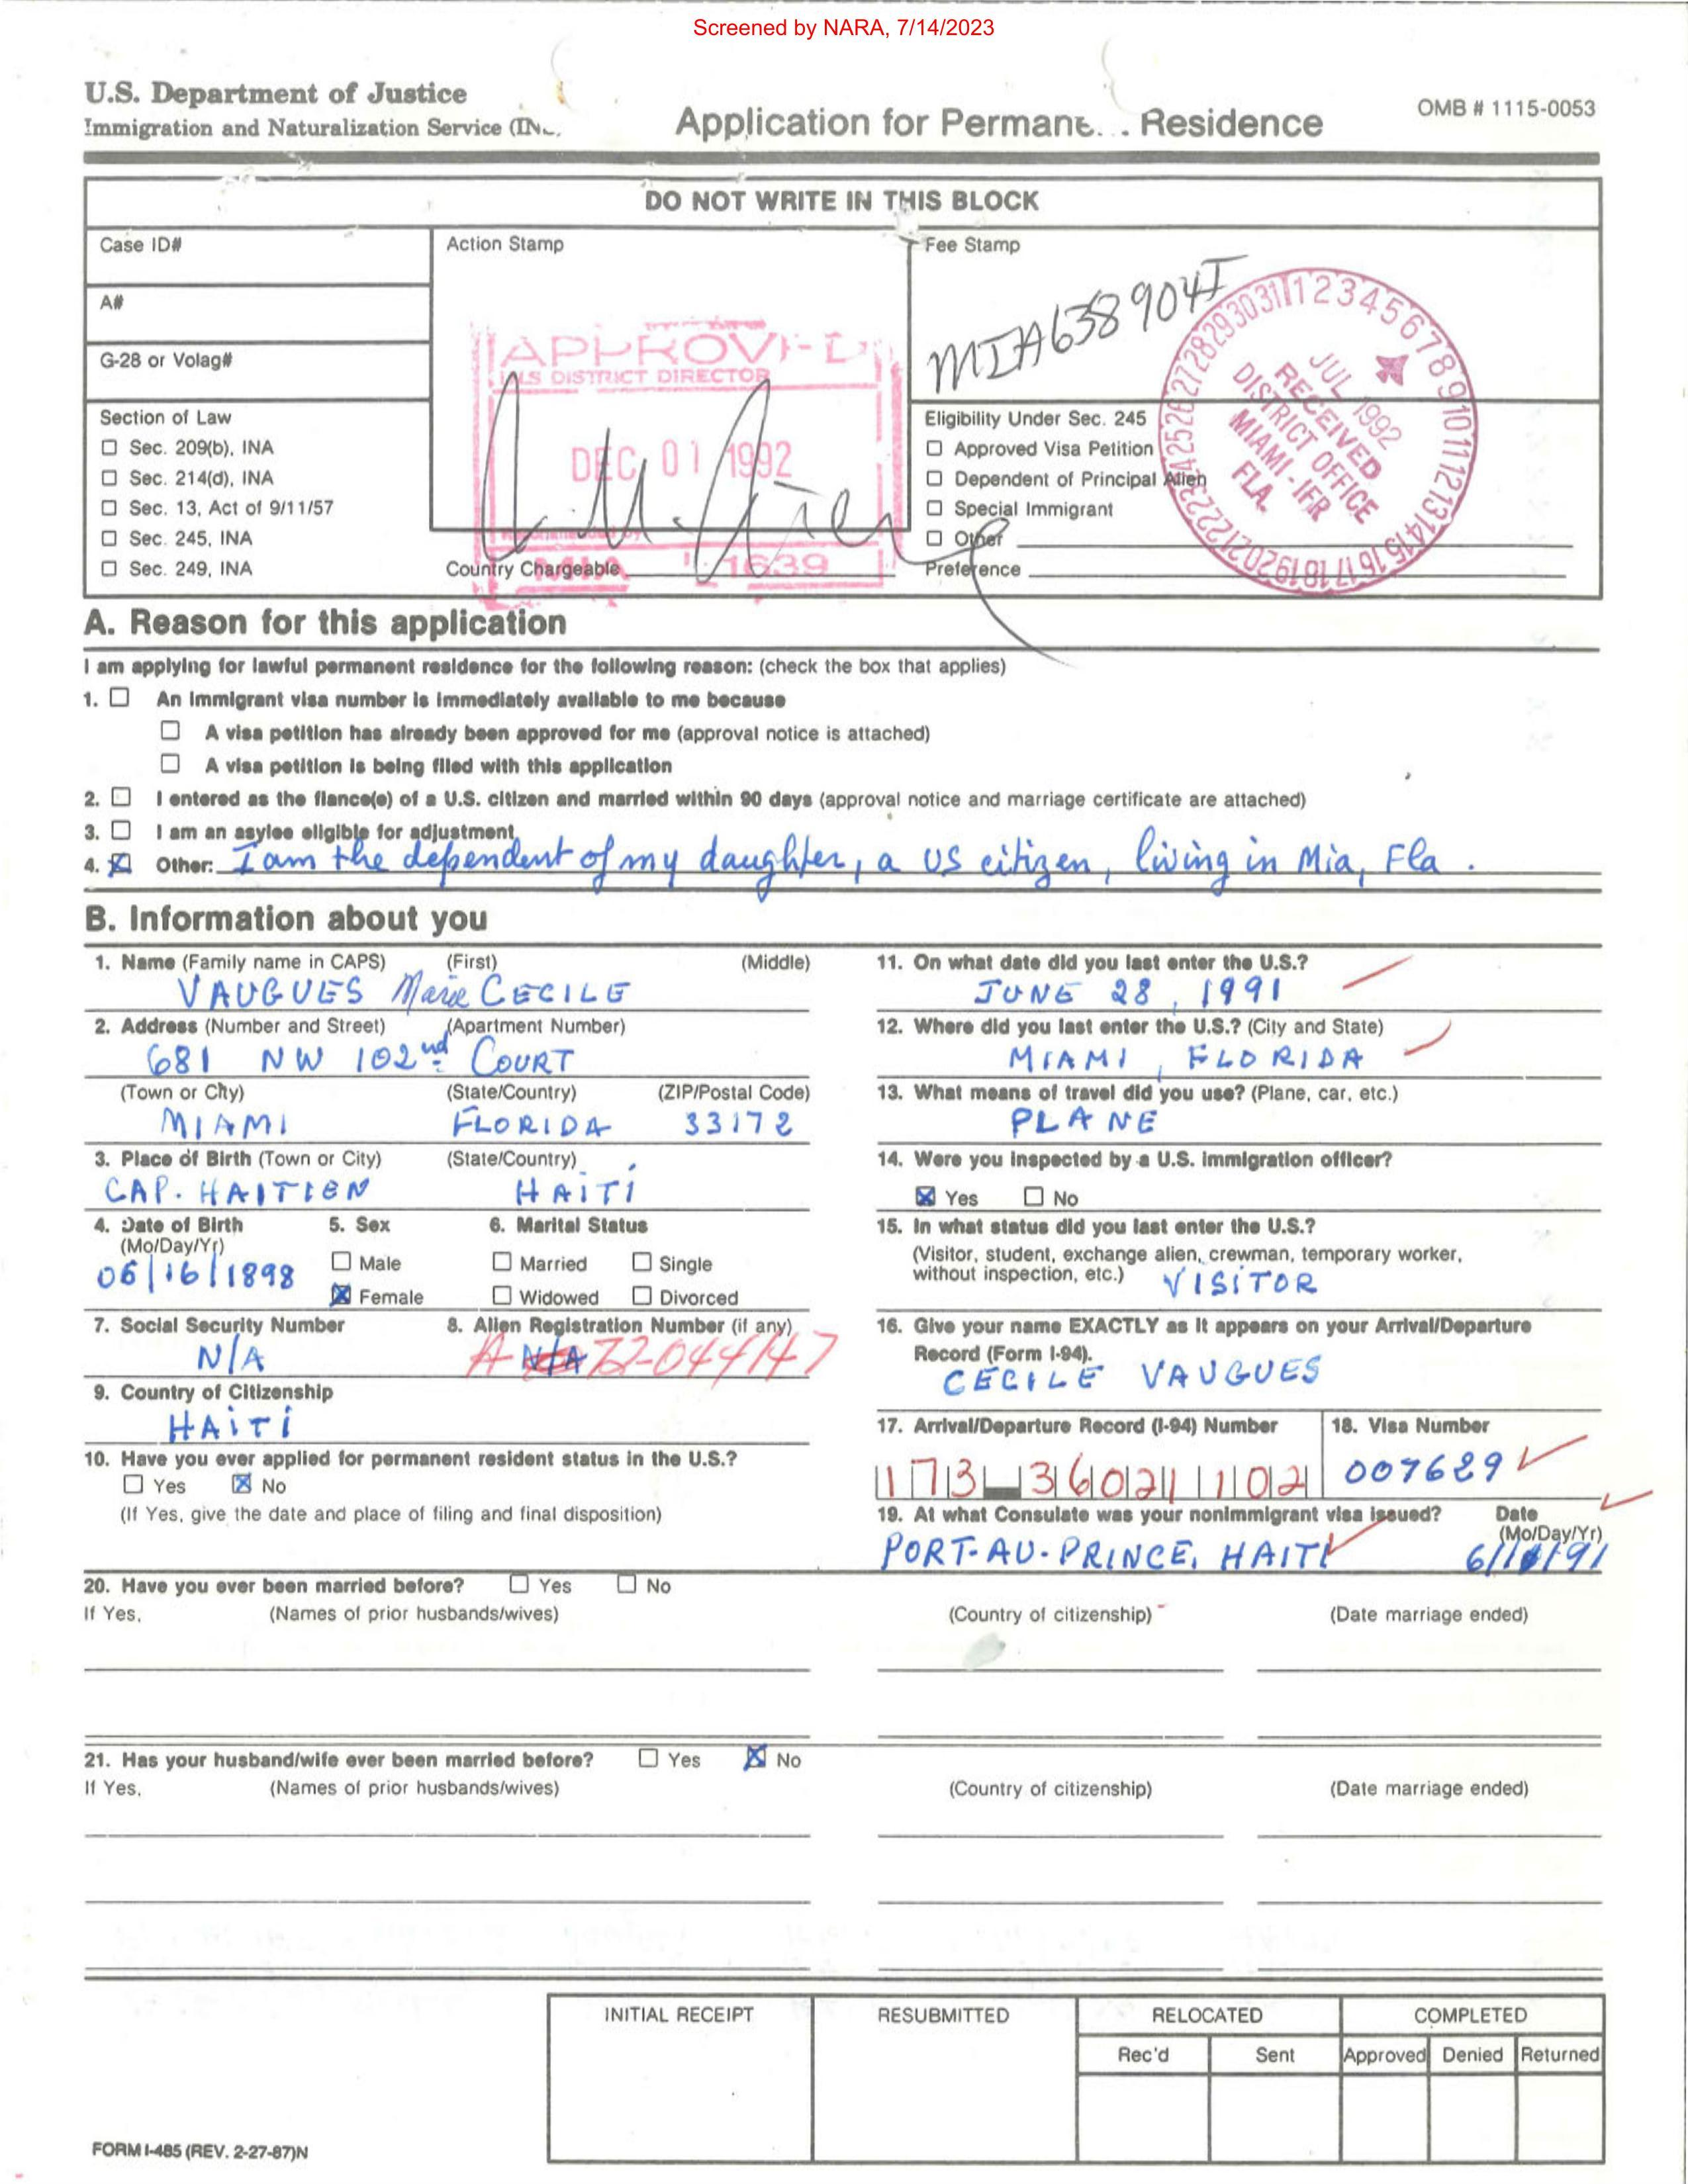 Screened by NARA, 7/14/2023
U.S. Department of Justice
Immigration and Naturalization Service
Application for Residence
OMB # 1115-0053
DO NOT WRITE IN THIS BLOCK
Case ID#
Action Stamp
Fee Stamp
A#
G-28 or Volag#
MIA638904I
APPROVED
DISTRICT DIRECTOR
DEC 01 1992
MIA 1639
JUL 1992
RECEIVED
DISTRICT OFFICE
MIAMI - IFR
FLA.
1 2 3 4 5 6 7 8 9 10 11 12 13 14 15 16 17 18 19 20 21 22 23 24 25 26 27 28 29 30 31
Section of Law
☐ Sec. 209(b), INA
☐ Sec. 214(d), INA
☐ Sec. 13, Act of 9/11/57
☐ Sec. 245, INA
☐ Sec. 249, INA
Country Chargeable
Eligibility Under Sec. 245
☐ Approved Visa Petition
☐ Dependent of Principal Alien
☐ Special Immigrant
☐ Other
Preference
A. Reason for this application
I am applying for lawful permanent residence for the following reason: (check the box that applies)
1. ☐ An immigrant visa number is immediately available to me because
☐ A visa petition has already been approved for me (approval notice is attached)
☐ A visa petition is being filed with this application
2. ☐ I entered as the fiance(e) of a U.S. citizen and married within 90 days (approval notice and marriage certificate are attached)
3. ☐ I am an asylee eligible for adjustment
4. ☒ Other: I am the dependent of my daughter, a US citizen, living in Mia, Fla.
B. Information about you
1. Name (Family name in CAPS) (First) (Middle)
VAUGUES Marie CECILE
2. Address (Number and Street) (Apartment Number)
681 NW 102nd COURT
(Town or City) (State/Country) (ZIP/Postal Code)
MIAMI FLORIDA 33172
3. Place of Birth (Town or City) (State/Country)
CAP. HAITIEN HAITI
4. Date of Birth (Mo/Day/Yr)
06/16/1898
5. Sex
☐ Male
☒ Female
6. Marital Status
☐ Married ☐ Single
☐ Widowed ☐ Divorced
7. Social Security Number
N/A
8. Alien Registration Number (if any)
A N/A 72-044147
9. Country of Citizenship
HAITI
10. Have you ever applied for permanent resident status in the U.S.?
☐ Yes ☒ No
(If Yes, give the date and place of filing and final disposition)
11. On what date did you last enter the U.S.?
JUNE 28, 1991
12. Where did you last enter the U.S.? (City and State)
MIAMI, FLORIDA
13. What means of travel did you use? (Plane, car, etc.)
PLANE
14. Were you inspected by a U.S. immigration officer?
☒ Yes ☐ No
15. In what status did you last enter the U.S.?
(Visitor, student, exchange alien, crewman, temporary worker,
without inspection, etc.) VISITOR
16. Give your name EXACTLY as it appears on your Arrival/Departure
Record (Form I-94).
CECILE VAUGUES
17. Arrival/Departure Record (I-94) Number
173-36021 102
18. Visa Number
007629
19. At what Consulate was your nonimmigrant visa issued? Date
(Mo/Day/Yr)
PORT-AU-PRINCE, HAITI
20. Have you ever been married before? ☐ Yes ☐ No
If Yes, (Names of prior husbands/wives) (Country of citizenship) (Date marriage ended)
21. Has your husband/wife ever been married before? ☐ Yes ☒ No
If Yes, (Names of prior husbands/wives) (Country of citizenship) (Date marriage ended)
INITIAL RECEIPT
RESUBMITTED
RELOCATED
COMPLETED
Rec'd
Sent
Approved
Denied
Returned
FORM I-485 (REV. 2-27-87)N